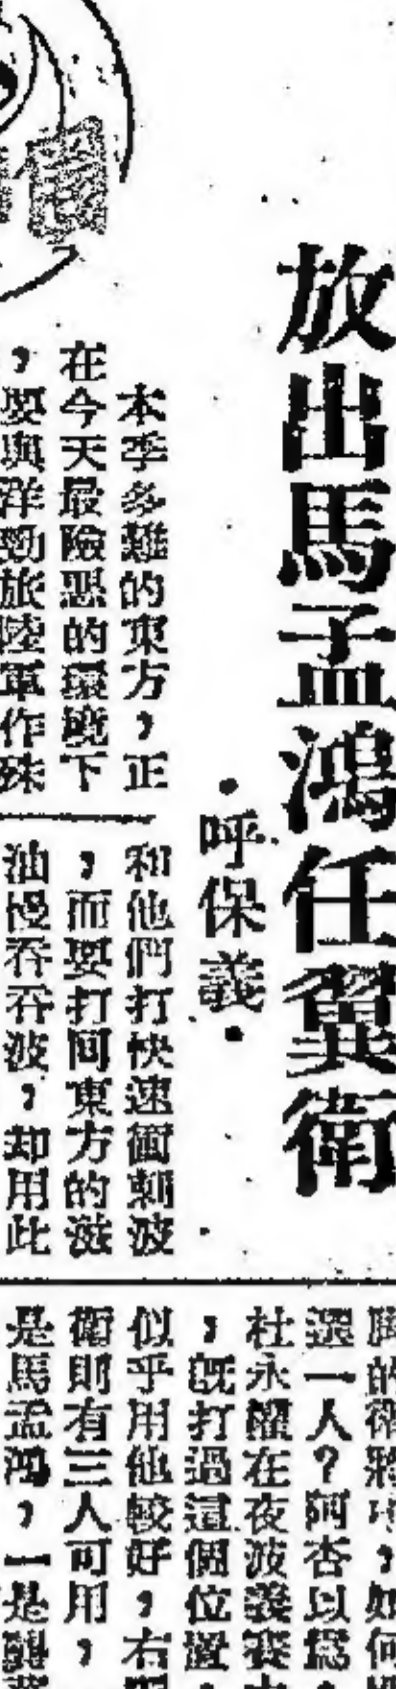 放出馬孟鴻任翼衛
·呼保義·
本季多難的東方，正
在今天最險惡的環境下
，要與洋勁旅陸軍作殊
和他們打快速衝刺波
，而要打回東方的滋
油慢吞吞波，却用此
的衛將
選一人？阿杏以爲，
杜永耀在夜波義賽
，既打過這個位置，
似乎用他較好，右
衛則有三人可用，
是馬孟鴻，一是